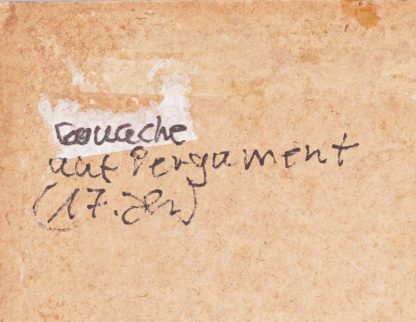 Gouache
auf Pergament
(17. Jh)